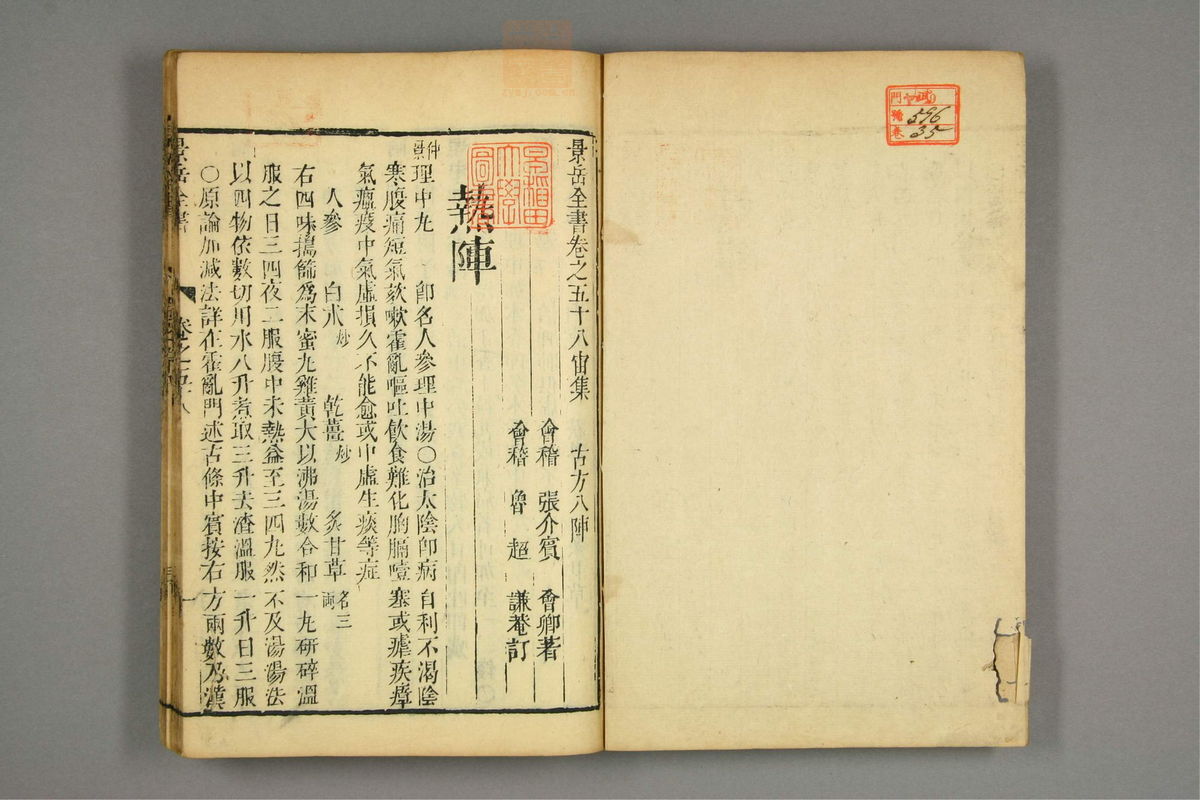 門
號 596
卷 35
景岳全書卷之五十八宙集 古方八陣
會稽 張介賓 會卿著
會稽 魯超 謙菴訂
熱陣
仲景理中丸 卽名人參理中湯〇治太陰卽病自利不渴陰
寒腹痛短氣欬嗽霍亂嘔吐飲食難化胸膈噎塞或瘧疾瘴
氣瘟疫中氣虛損久不能愈或中虛生痰等症
人參 白朮炒 乾薑炒 炙甘草各三兩
右四味搗篩爲末蜜丸雞黃大以沸湯數合和一丸研碎溫
服之日三四夜二服腹中未熱益至三四丸然不及湯湯法
以四物依數切用水八升煮取三升去渣溫服一升日三服
〇原論加減法詳在霍亂門述古條中賓按右方兩數乃漢
景岳全書 卷之五十八
早稻田大學圖書